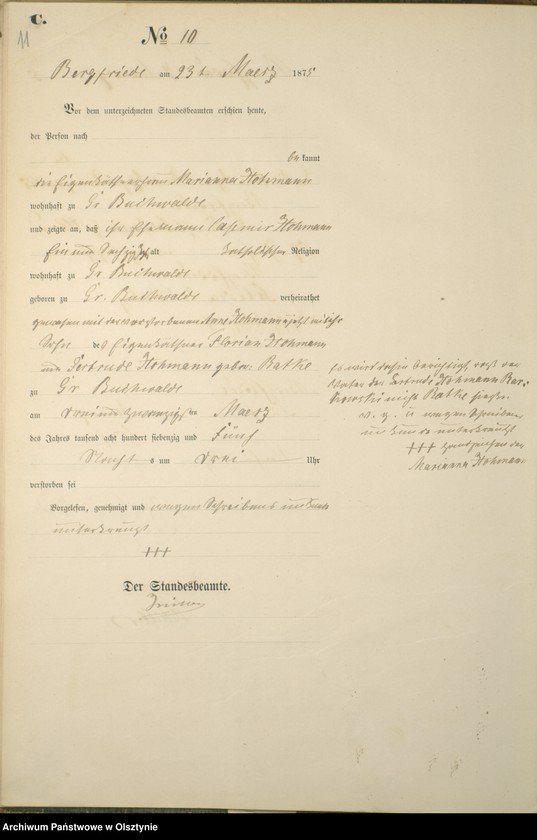 C.
11
No 10
Bergfriede am 23t Maerz 1875
Vor dem unterzeichneten Standesbeamten erschien heute,
der Person nach
bekannt
die Eigenkäthnerfrau Marianna Hohmann
wohnhaft zu Gr Buchwalde
und zeigte an, daß ihr Ehemann Casimir Hohmann
Ein und Sechzig alt katholischer Religion
wohnhaft zu Gr Buchwalde
geboren zu Gr. Buchwalde verheirathet
gewesen mit der verstorbenen Anna Hohmann
Sohn des Eigenkäthner Florian Hohmann
und Gertrude Hohmann geborne Ratke
zu Gr Buchwalde
am drei und zwanzigsten Maerz
des Jahres tausend acht hundert siebenzig und fünf
Nacht s um drei Uhr
verstorben sei
Vorgelesen, genehmigt und wegen Schreibens unkunde
unterkreuzt
+++
Der Standesbeamte.
es wird dahin berichtigt, daß der
Vater der Gertrude Hohmann
nicht Ratke
v. g. u wegen Schreibens
unkunde unterkreuzt
+++ Handzeichen der
Marianna Hohmann
Archiwum Państwowe w Olsztynie